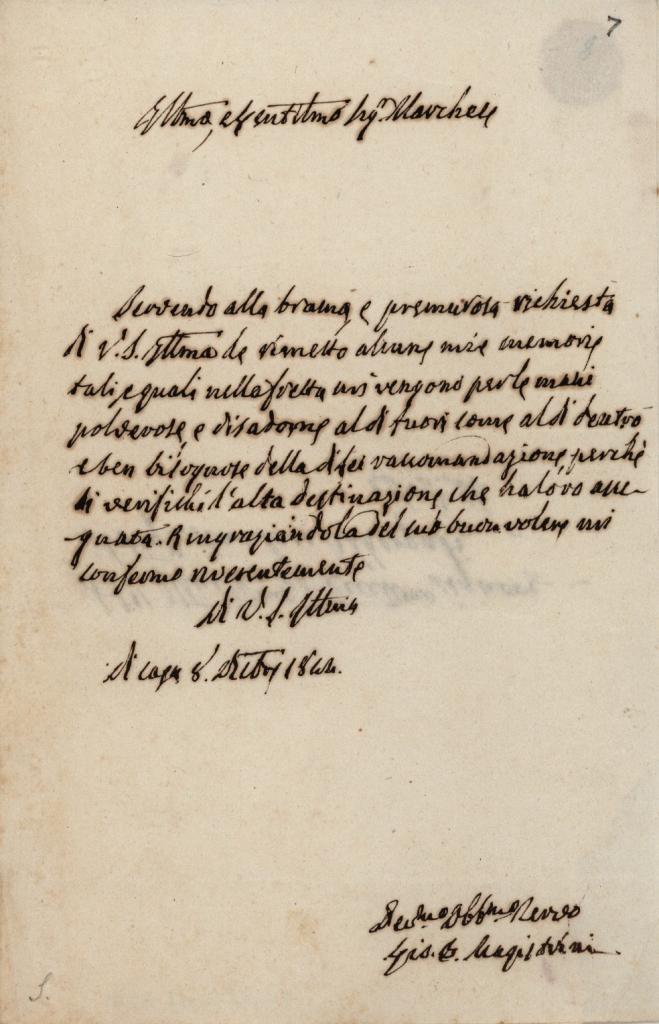 7
Illmo, e Gentilmo Sigr. Marchese
Servendo alla brama, e premurosa richiesta
di V. S. Illma le rimetto alcune mie memorie
tali, e quali nella fretta mi vengono per le mani
polverose, e disadorne al di fuori come al di dentro
e ben bisognose della di lei raccomandazione, perchè
si verifichi l'alta destinazione, che ha loro asse-
gnata. Ringraziandola del suo buon volere mi
confermo riverentemente
Di V. S. Illma
Di casa 8. Dicbre 1844.
Devmo Obbmo Servo
Gio. B. Magistrini
S.